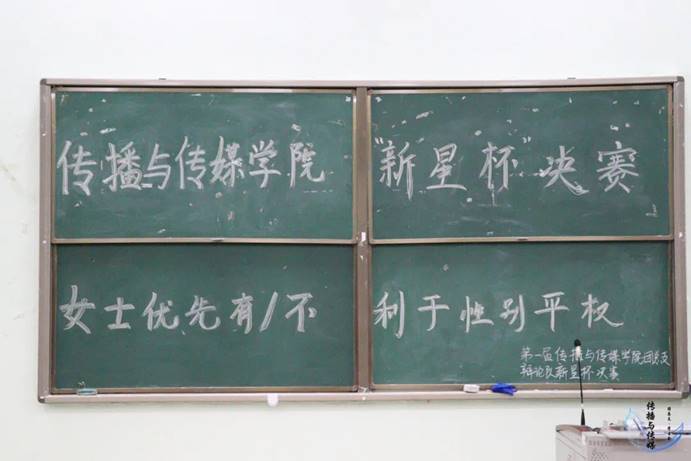 传播与传媒学院
"新星杯"决赛
女士优先有/不
利于性别平权
第一届传播与传媒学院团总支
辩论队新星杯决赛
传播与传媒